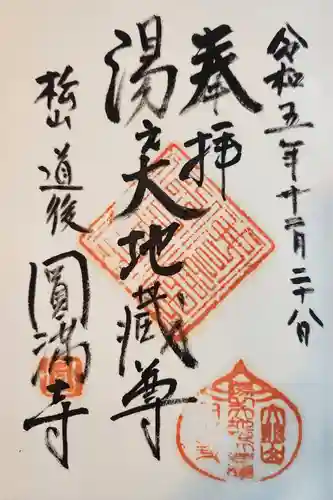 令和五年十二月二十八日
奉拝
湯之大地蔵尊
松山 道後
圓満寺